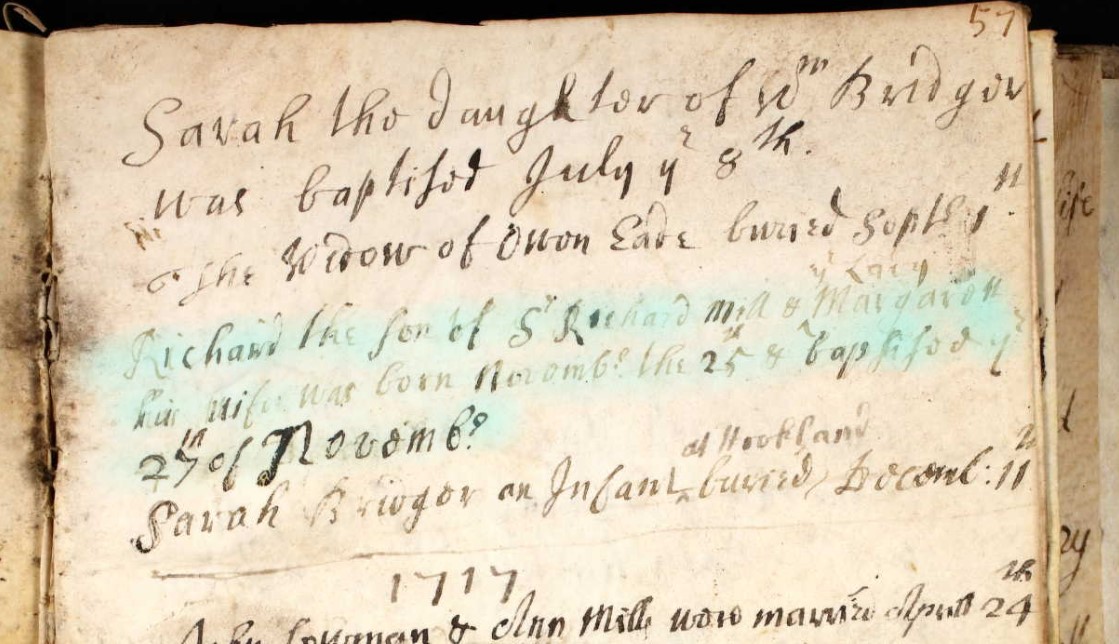 57
Sarah the daughter of Wm Bridger
was baptised July ye 8th.
The Widow of Owen Eade buried Septbr 1
ye Lady
Richard the son of Sr Richard Mill & Margarett
his wife was born Novembr the 25th & baptised ye
27th of Novembr
at Woolland
Sarah Bridger an Infant buried Decemb: 11
1717
Lowman & Ann Mills were married Aprill 24th